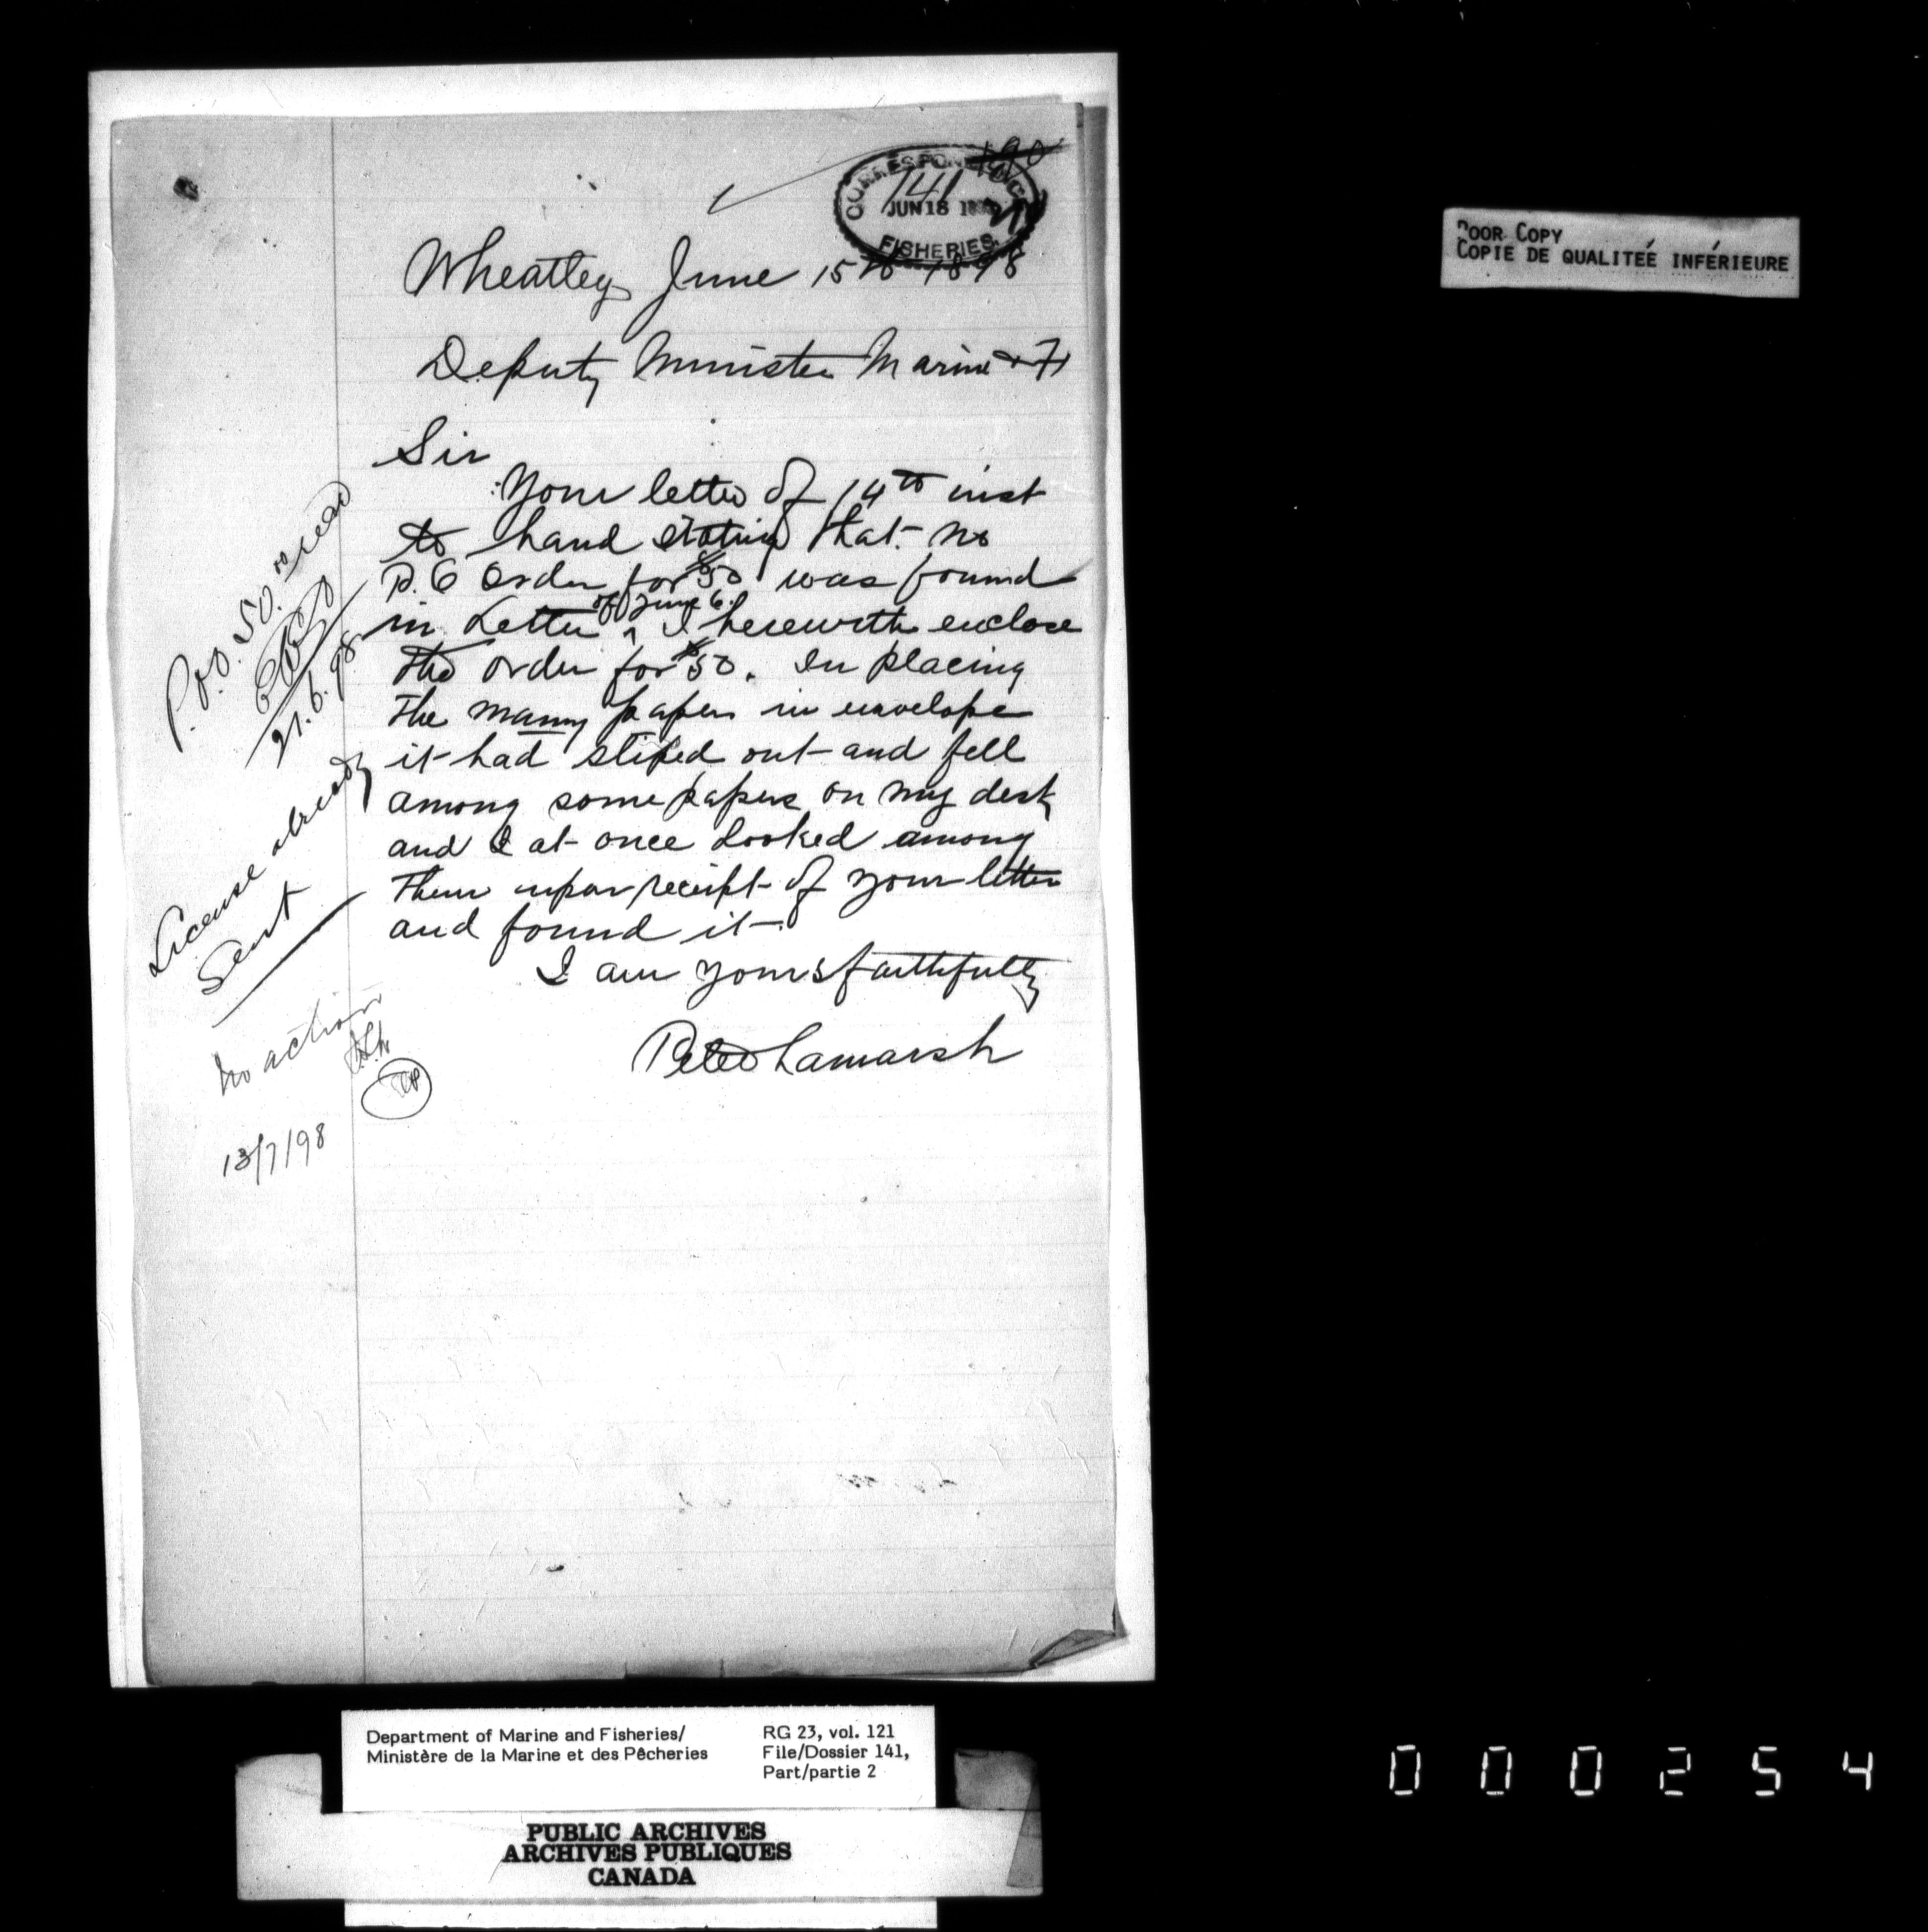 190
CORRESPONDENCE
141
JUN 18 1898
FISHERIES
Wheatley June 15th 1898
Deputy Minister Marine & F
Sir
Your letter of 14th inst
to hand stating that no
P.O Order for $50 was found
of June 6.
in Letter ^ I herewith enclose
the order for $50. In placing
the many papers in envelope
it had sliped out and fell
among some papers on my desk
and I at once looked among
them upon receipt of your letter
and found it.
I am yours faithfully
Peter Lamarsh
P.O.O. 50.00 recd
21.6.98
License already
Sent
No action
13/7/98
POOR COPY
COPIE DE QUALITEÉ INFÉRIEURE
Department of Marine and Fisheries/
Ministère de la Marine et des Pêcheries
RG 23, vol. 121
File/Dossier 141,
Part/partie 2
PUBLIC ARCHIVES
ARCHIVES PUBLIQUES
CANADA
000254